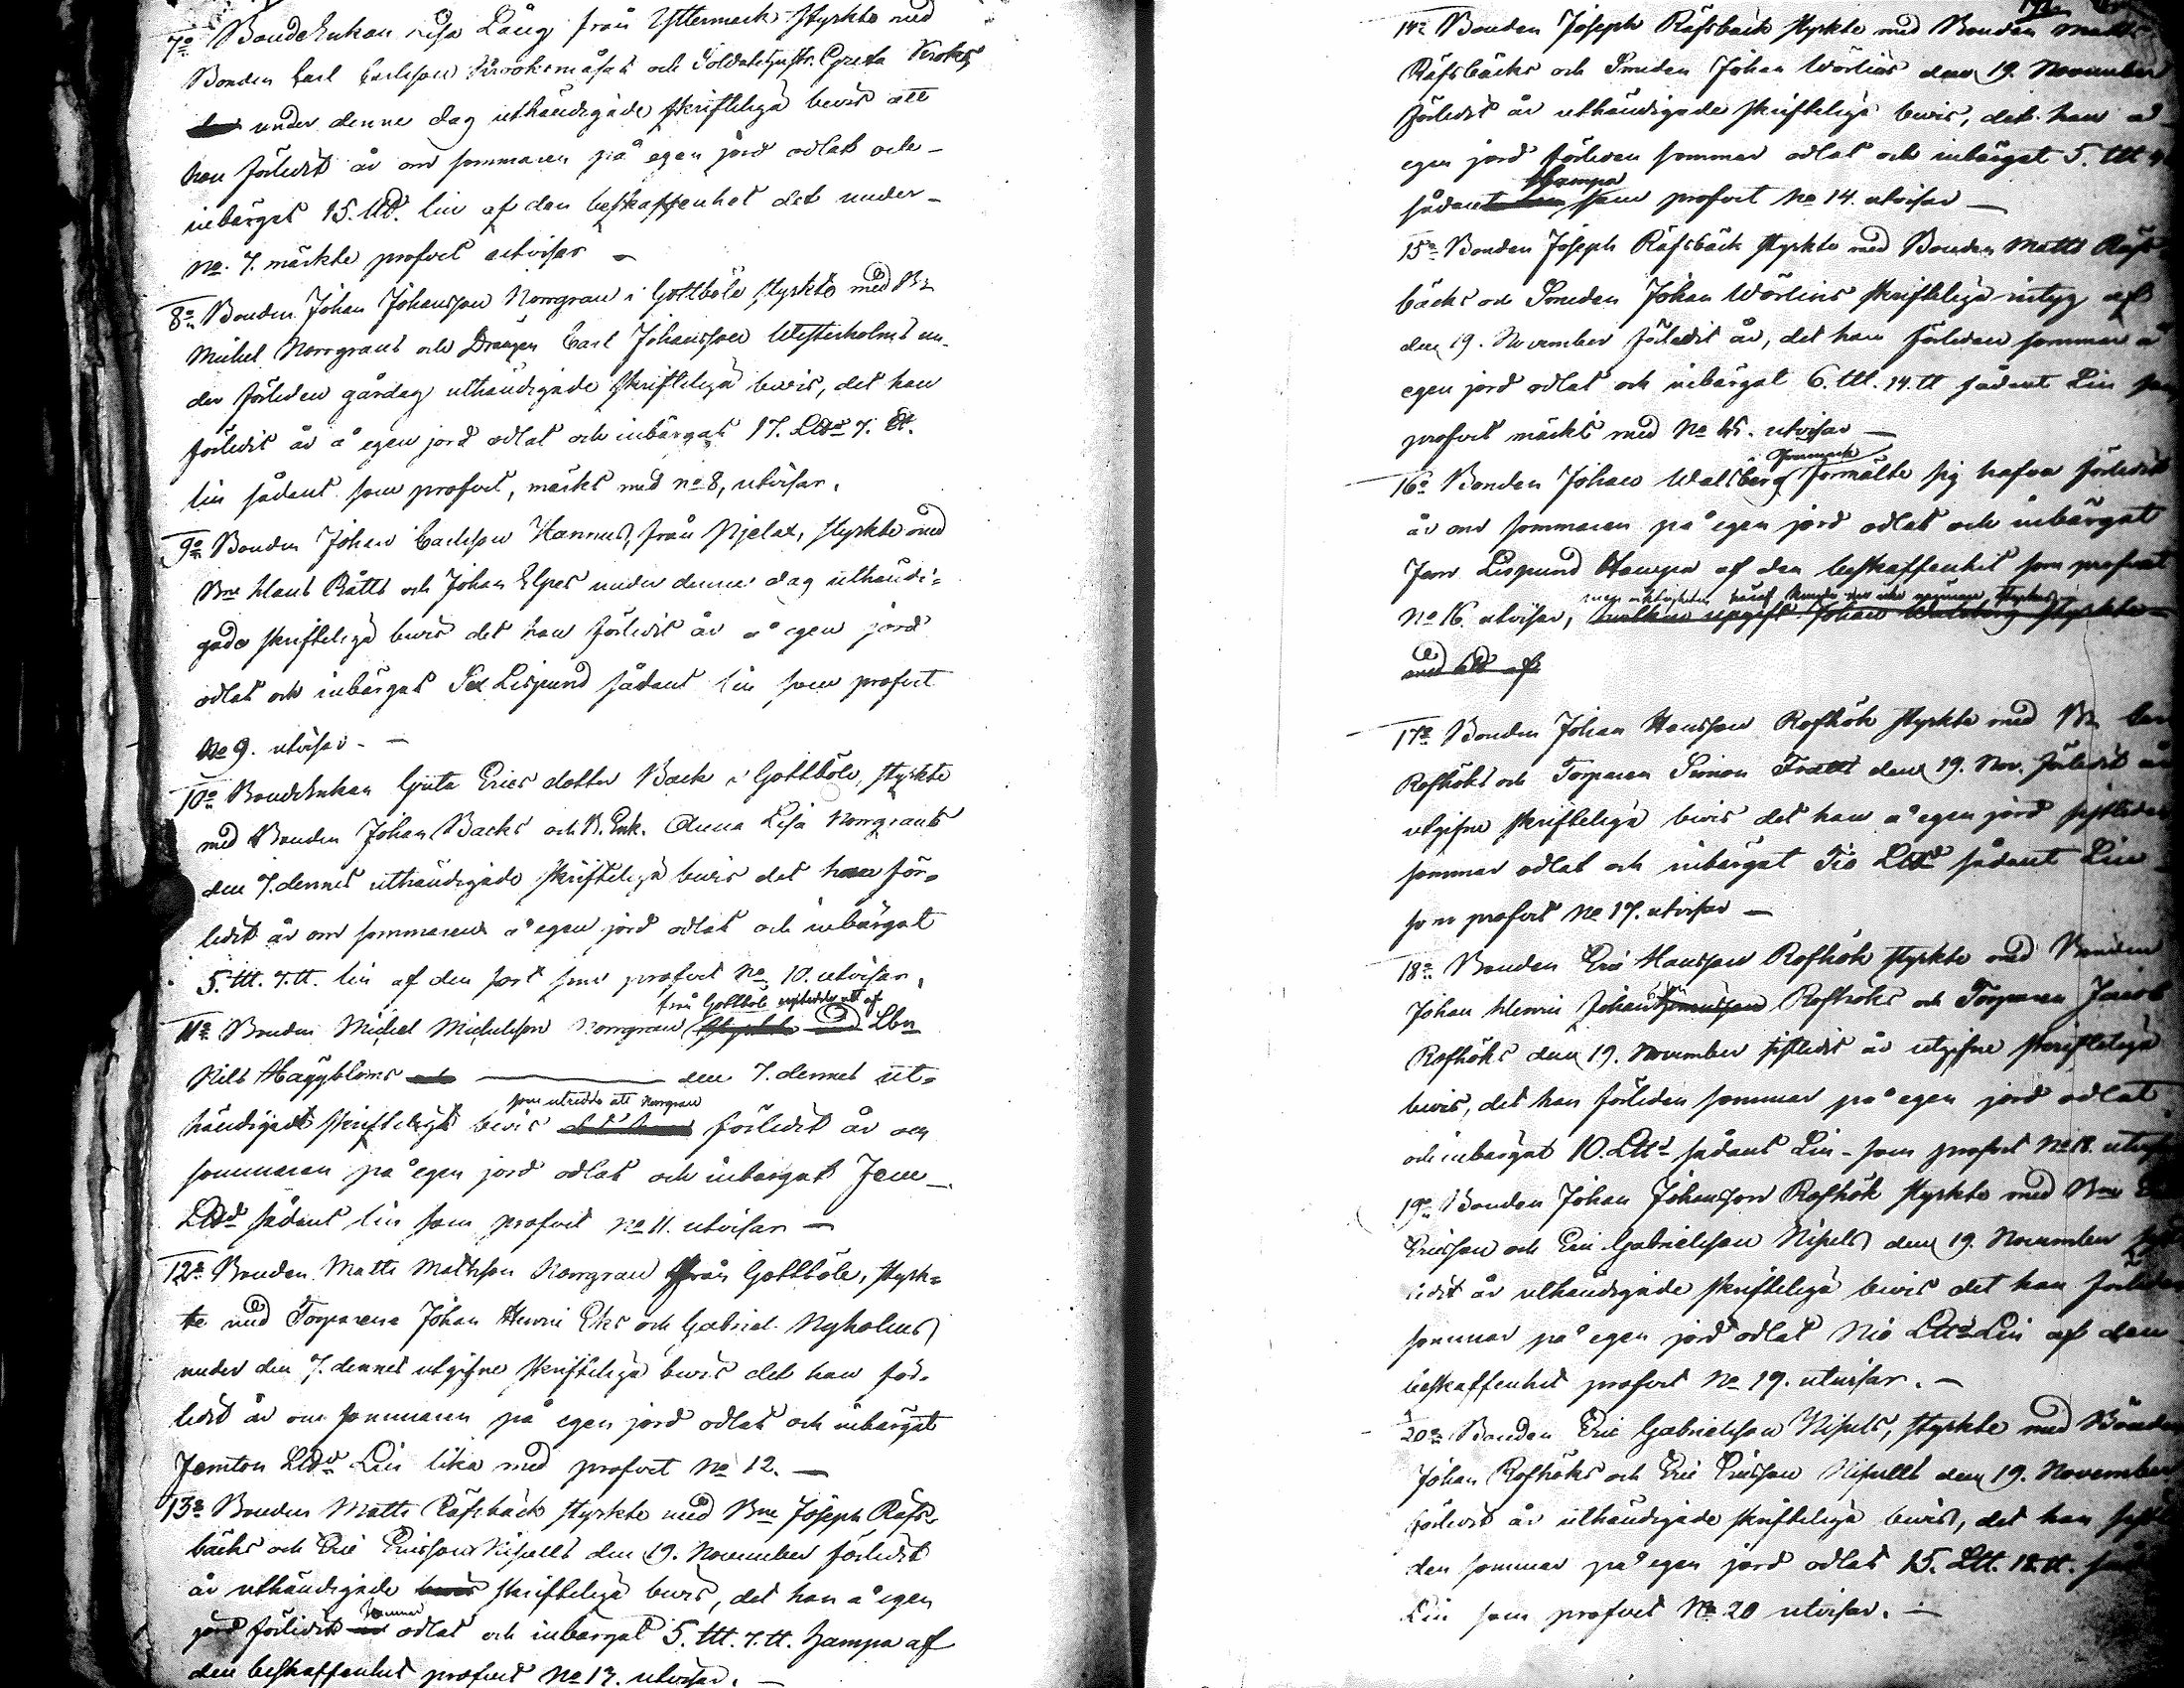 7o BondeEnkan Lisa Lång från Yttermark styrkte med
Bonden Carl Carlsson Krooksmåsas och Soldatehustr. Greta Krokes
under denne dag uthändigade skrifteliga bevis att
hon förledit år om sommaren på egen jord odlat och
inbärgat 15. Lld. lin af den beskaffenhet det under
No. 7. märkte profvet utvisar —
8o Bonden Johan Johansson Norrgran i Gottböle styrkte med Br
Michel Norrgrans och Drängen Carl Johansson Westerholms un-
der förleden gårdag uthändigade skrifteliga bevis, det han
förledit år å egen jord odlat och inbärgat 17. Lld 7. tt.
lin sådant som profvet, märkt med no 8, utvisar.
9o Bonden Johan Carlsson Hannus, från Pjelax, styrkte med
Bne Clas Rätts och Johan Elfves under denne dag uthändi-
gade skrifteliga bevis det han förledit år å egen jord
odlat och inbärgat Sex Lispund sådant lin som profvet
No 9. utvisar. —
10o BondeEnkan Greta Erics dotter Back i Gottböle, styrkte
med Bonden Johan Backs och B. Enk. Anna Lisa Norrgrans
den 7. dennes uthändigade skrifteliga bevis det hon för-
ledit år om sommaren å egen jord odlat och inbärgat
5. ttt. 7. tt. lin af den sort som profvet No 10. utvisar.
från Gottböle
11o Bonden Michel Michelsson Norrgran styrkte med Lbn
Nils Häggbloms och — den 7. dennes ut-
som utredde att Norrgran
händigat skrifteligt bevis det han förledit år om
sommaren på egen jord odlat och inbärgat Fem
Lld sådant lin som profvet No 11. utvisar —
12o Bonden Matts Mattsson Norrgran från Gottböle, styrk-
te med Torparene Johan Henric Eks och Gabriel Nyholms
under den 7. dennes utgifne skrifteliga bevis det han för-
ledit år om sommaren på egen jord odlat och inbärgat
Femton Lld Lin lika med profvet No 12. —
13o Bonden Matts Räfsbäck styrkte med Bne Joseph Räfs-
bäcks och Eric Ericsson Nisulls den 19. November förledit
år uthändigade bevis skrifteliga bevis, det han å egen
sommar
jord förledit odlat och inbärgat 5. ttt. 7. tt. hampa af
den beskaffenhet profvet No 13. utvisar. —
14o Bonden Joseph Räfsbäck styrkte med Bonden Matts
Räfsbäcks och Smeden Johan Wörlins den 19. November
förledit år uthändigade skrifteliga bevis, det han å
egen jord förleden sommar odlat och inbärgat 5. ttt
Hampa
sådant som profvet No 14. utvisar —
15o Bonden Joseph Räfsbäck styrkte med Bonden Matts Räfs-
bäcks och Smeden Johan Wörlins skrifteliga intyg af
den 19. November förledit år, det han förleden sommar å
egen jord odlat och inbärgat 6. ttt. 14. tt sådant Lin som
profvet märkt med No 15. utvisar —
16o Bonden Johan Wallsberg förmälte sig hafva förledit
år om sommaren på egen jord odlat och inbärgat
Fem Lispund Hampa af den beskaffenhet som profvet
No 16. utvisar, hvilken uppgift Johan Wallsberg styrkte
med
17o Bonden Johan Hansson Rofhök styrkte med Br
Rofhöks och Torparen Simon den 19. Nov. förledit år
utgifne skrifteliga bevis det han å egen jord sistleden
sommar odlat och inbärgat Tio Lttd sådant Lin
som profvet No 17. utvisar —
18o Bonden Eric Hansson Rofhök styrkte med Bonden
Johan Henric Rofhöks och Torparen Jacob
Rofhöks den 19. November sistledit år utgifne skrifteliga
bevis, det han förleden sommar på egen jord odlat
och inbärgat 10. Lttd sådant Lin som profvet No 18. utvisar
19o Bonden Johan Johansson Rofhök styrkte med Bne
Ericsson och Eric Gabrielsson Nisuls den 19. November
ledit år uthändigade skrifteliga bevis det han förleden
sommar på egen jord odlat Nio Lttd Lin af den
beskaffenhet profvet No 19. utvisar. —
20o Bonden Eric Gabrielsson Nisuls, styrkte med Bönder
Johan Rofhöks och Eric Ericsson Nisulls den 19. November
förledit år uthändigade skrifteliga bevis, det han
den sommar på egen jord odlat 15. Ltt. 18. tt.
Lin som profvet No 20 utvisar. —